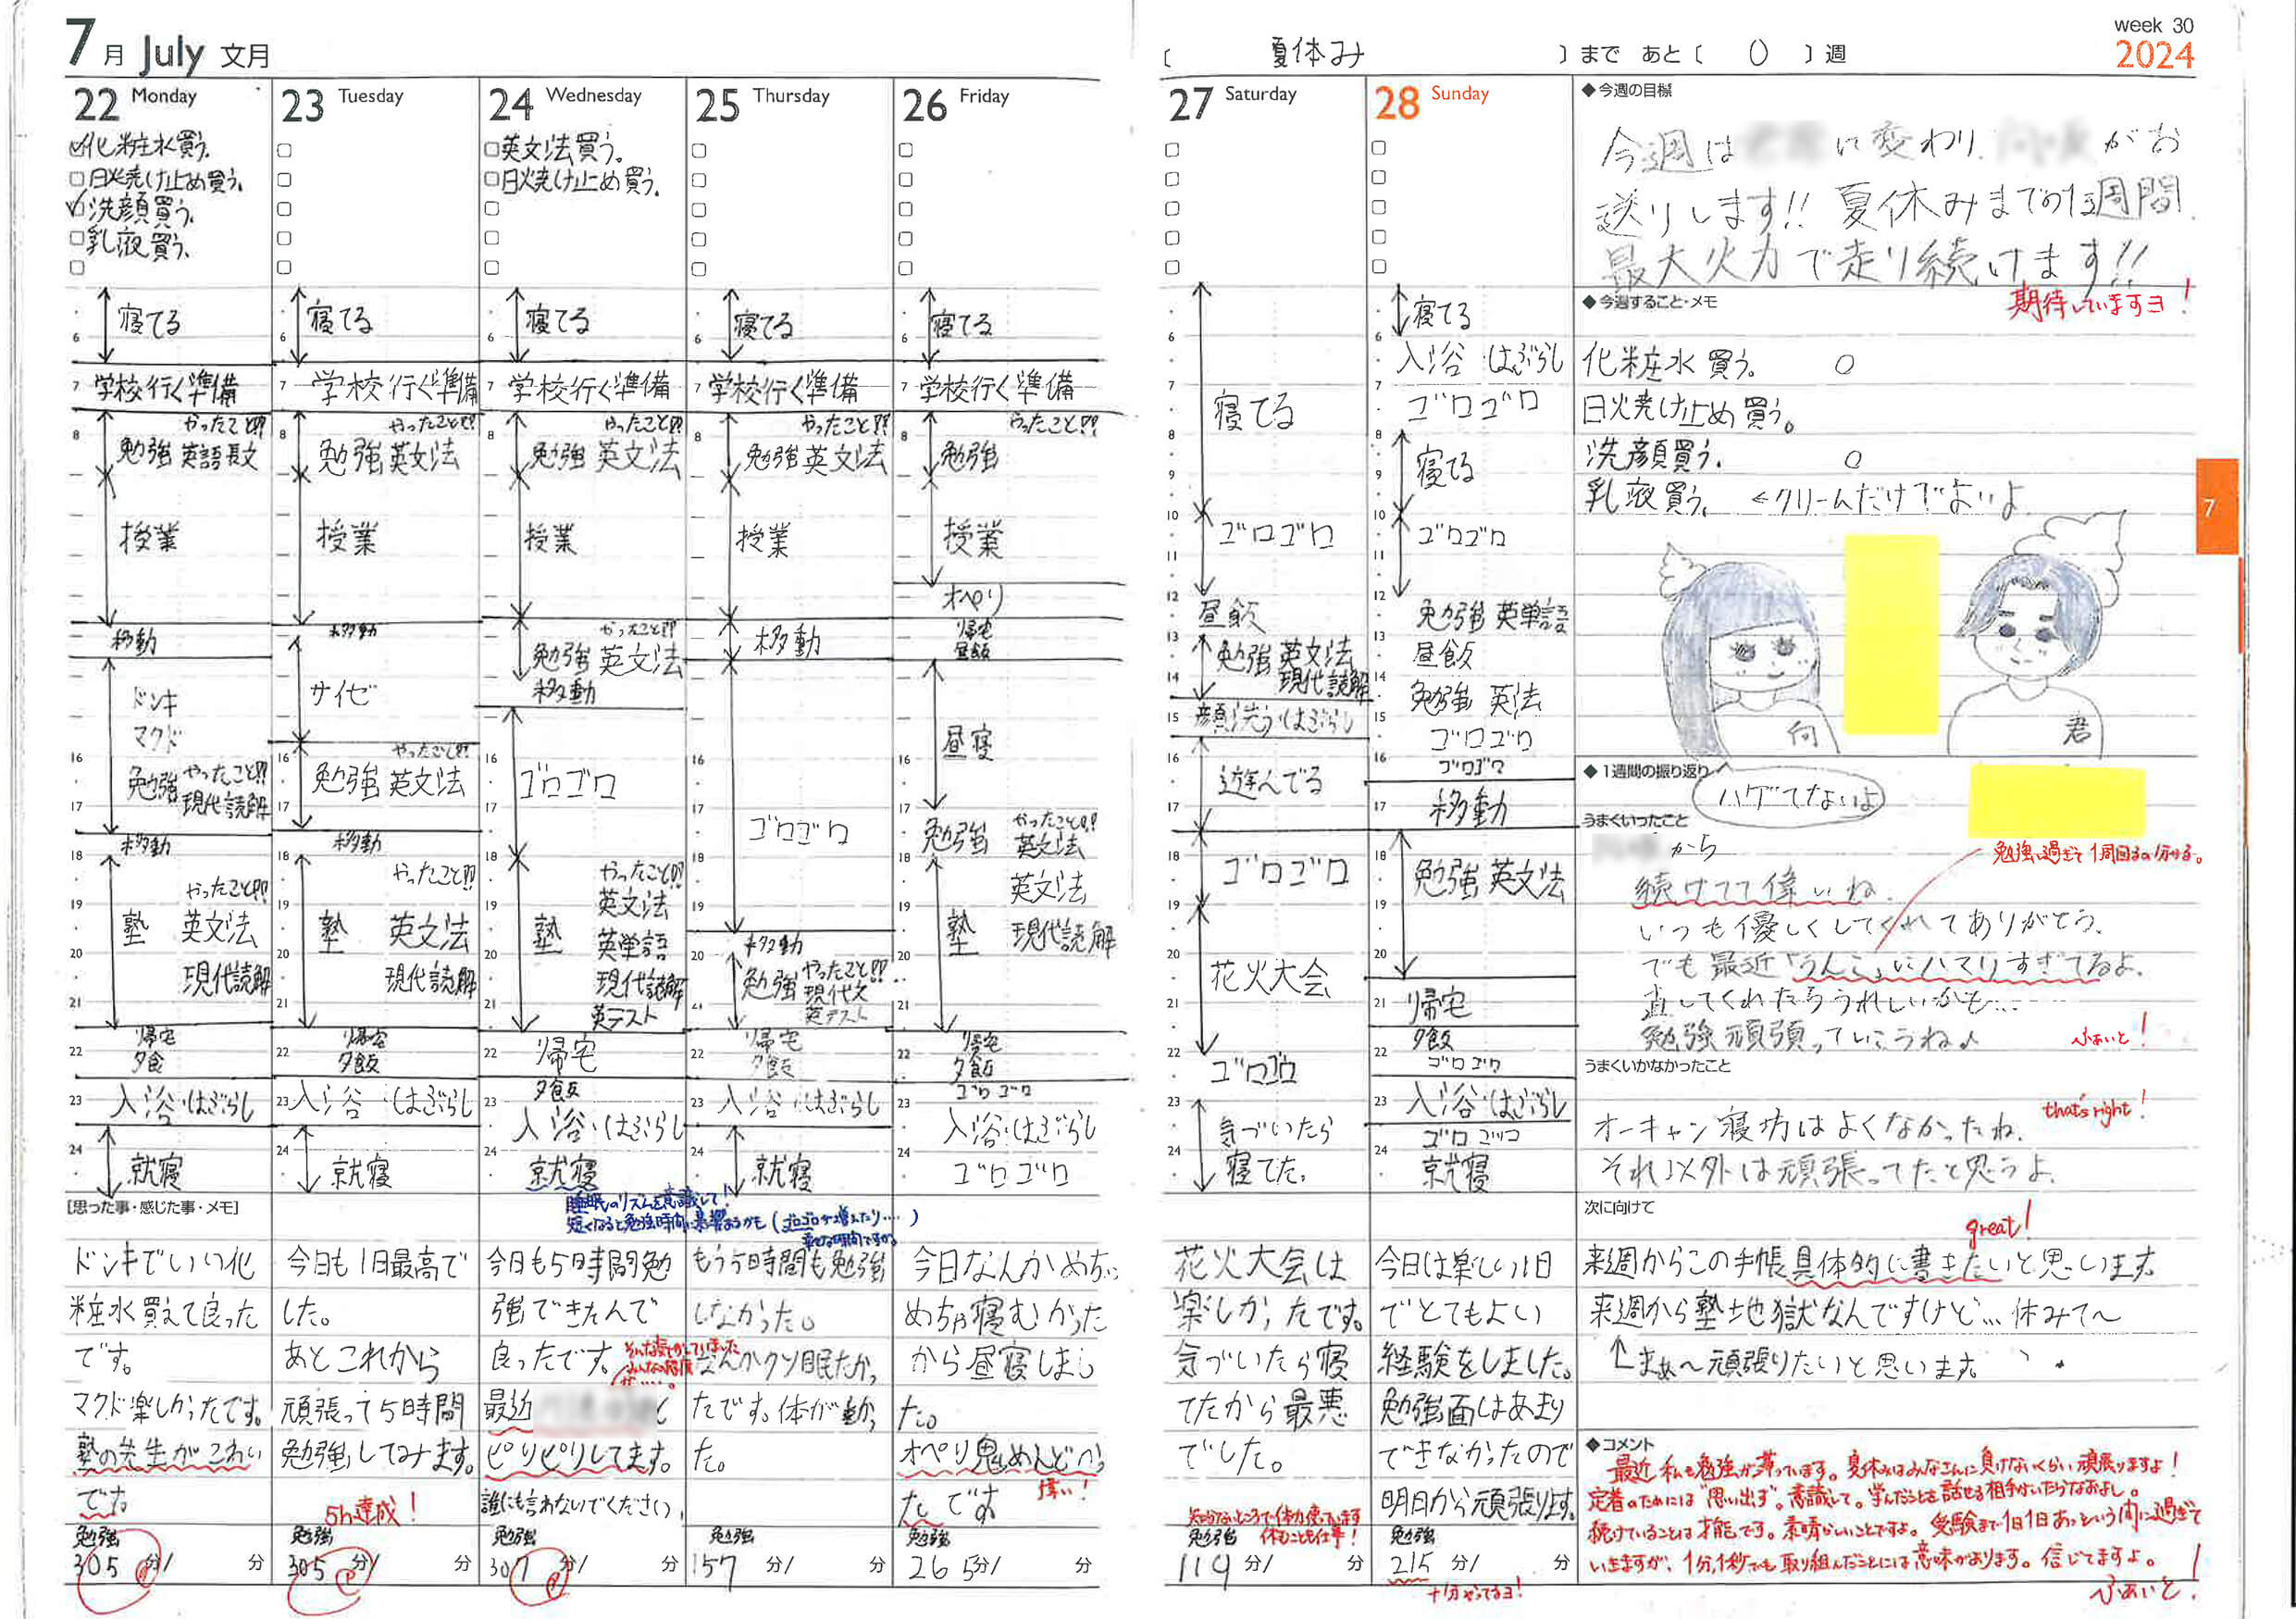 7月 July 文月
22 Monday
化粧水買う。
日焼け止め買う。
洗顔買う。
乳液買う。
6 寝てる
7 学校行く準備
やったこと!!
8 勉強 英語長文
授業
移動
ドンキ
マクド
16 勉強 やったこと!!
17 現代読解
移動
18
やったこと!!
19 塾 英文法
20 現代読解
21
帰宅
22 夕食
23 入浴・はぶらし
24 就寝
[思った事・感じた事・メモ]
ドンキでいい化
粧水買えて良った
です。
マクド楽しかったです。
塾の先生がこわい
です
勉強
305分/ 分
23 Tuesday
6 寝てる
7 学校行く準備
やったこと!!
8 勉強 英文法
授業
移動
サイゼ
やったこと!!
16 勉強 英文法
17
移動
18 やったこと!!
19 塾 英文法
20 現代読解
21
帰宅
22 夕飯
23 入浴・はぶらし
24 就寝
今日も1日最高で
した。
あとこれから
頑張って5時間
勉強してみます。
5h達成!
勉強
305分/ 分
24 Wednesday
英文法買う。
日焼け止め買う。
6 寝てる
7 学校行く準備
やったこと!!
8 勉強 英文法
授業
やったこと!!
勉強 英文法
移動
16 ゴロゴロ
17
18 やったこと!!
英文法
19 塾 英単語
20 現代読解
21 英テスト
22 帰宅
夕飯
23 入浴・はぶらし
24 就寝
睡眠のリズムを意識して!
短くなると勉強時間に影響あるかも(ゴロゴロが増えたり....)
幸せな時間ですが。
今日も5時間勉
強できたんで
良ったです。
最近
ピリピリしてます。
誰にも言わないでください。
勉強
307分/ 分
25 Thursday
6 寝てる
7 学校行く準備
やったこと!!
8 勉強 英文法
授業
移動
16
17 ゴロゴロ
18
19
移動
20 勉強 やったこと!!
現代文
21 英テスト
帰宅
22 夕飯
23 入浴・はぶらし
24 就寝
もう5時間も勉強
しなかった。
なんかクソ眠たか,
たです。体が動,
た。
勉強
157分/ 分
26 Friday
6 寝てる
7 学校行く準備
やったこと!!
8 勉強
授業
オペリ
帰宅
昼飯
16 昼寝
17
勉強 やったこと!!
英文法
18 英文法
19 塾 現代読解
20
21
帰宅
22 夕飯
ゴロゴロ
23 入浴・はぶらし
24 ゴロゴロ
今日なんかめちゃ
めちゃ寝むかった
から昼寝しまし
た。
オペリ鬼めんどかっ
たです
偉い!
勉強
265分/ 分
[ 夏休み ]まで あと[ 0 ]週
week 30
2024
27 Saturday
6
7 寝てる
8
9
10
ゴロゴロ
11
12 昼飯
13 勉強 英文法
14 現代読解
15 顔洗う・はぶらし
16 遊んでる
17
18 ゴロゴロ
19
20 花火大会
21
22 ゴロゴロ
23 気づいたら
24 寝てた。
花火大会は
楽しか,たです。
気づいたら寝
てたから最悪
でした。
知らないところで体力使っています
休むことも仕事!
勉強
119分/ 分
28 Sunday
寝てる
6 入浴・はぶらし
7 ゴロゴロ
8
9 寝てる
10
ゴロゴロ
11
12 勉強 英単語
13 昼飯
14 勉強 英法
15 ゴロゴロ
16 ゴロゴロ
17 移動
18 勉強 英文法
19
20
21 帰宅
夕飯
22 ゴロゴロ
23 入浴・はぶらし
ゴロゴロ
24 就寝
今日は楽しい1日
でとてもよい
経験をしました。
勉強面はあまり
できなかったので
明日から頑張ります。
勉強
215分/ 分
十分やってるヨ!
◆今週の目標
今週は に変わり、 がお
送りします!! 夏休みまでの1週間
最大火力で走り続けます!!
期待していますヨ!
◆今週すること・メモ
化粧水買う。 ○
日火焼け止め買う。
洗顔買う。 ○
乳液買う。 ←クリームだけでよいよ
向
君
7
◆1週間の振り返り
ハゲてないよ
うまくいったこと
から
勉強し過ぎて1周回るの分かる。
続けてて偉いね。
いつも優しくしてくれてありがとう。
でも最近「うんこ」にハマりすぎてるよ。
直してくれたらうれしいかも...
勉強頑張っていこうね♪
ふぁいと!
うまくいかなかったこと
that's right!
オーキャン寝坊はよくなかったね。
それ以外は頑張ってたと思うよ。
次に向けて
great!
来週からこの手帳具体的に書きたいと思います
来週から塾地獄なんですけど...休みて〜
↑まぁ〜頑張りたいと思います。
◆コメント
最近私も勉強が滞っています。夏休みはみなさんに負けないくらい頑張りますよ!
定着のためには"思い出す"。意識して。学んだことを話せる相手がいたらなおよし。
続けていることは才能です。素晴らしいことですよ。受験まで1日1日あっという間に過ぎて
いきますが、1分1秒でも取り組んだことには意味があります。信じてますよ。
ふぁいと!